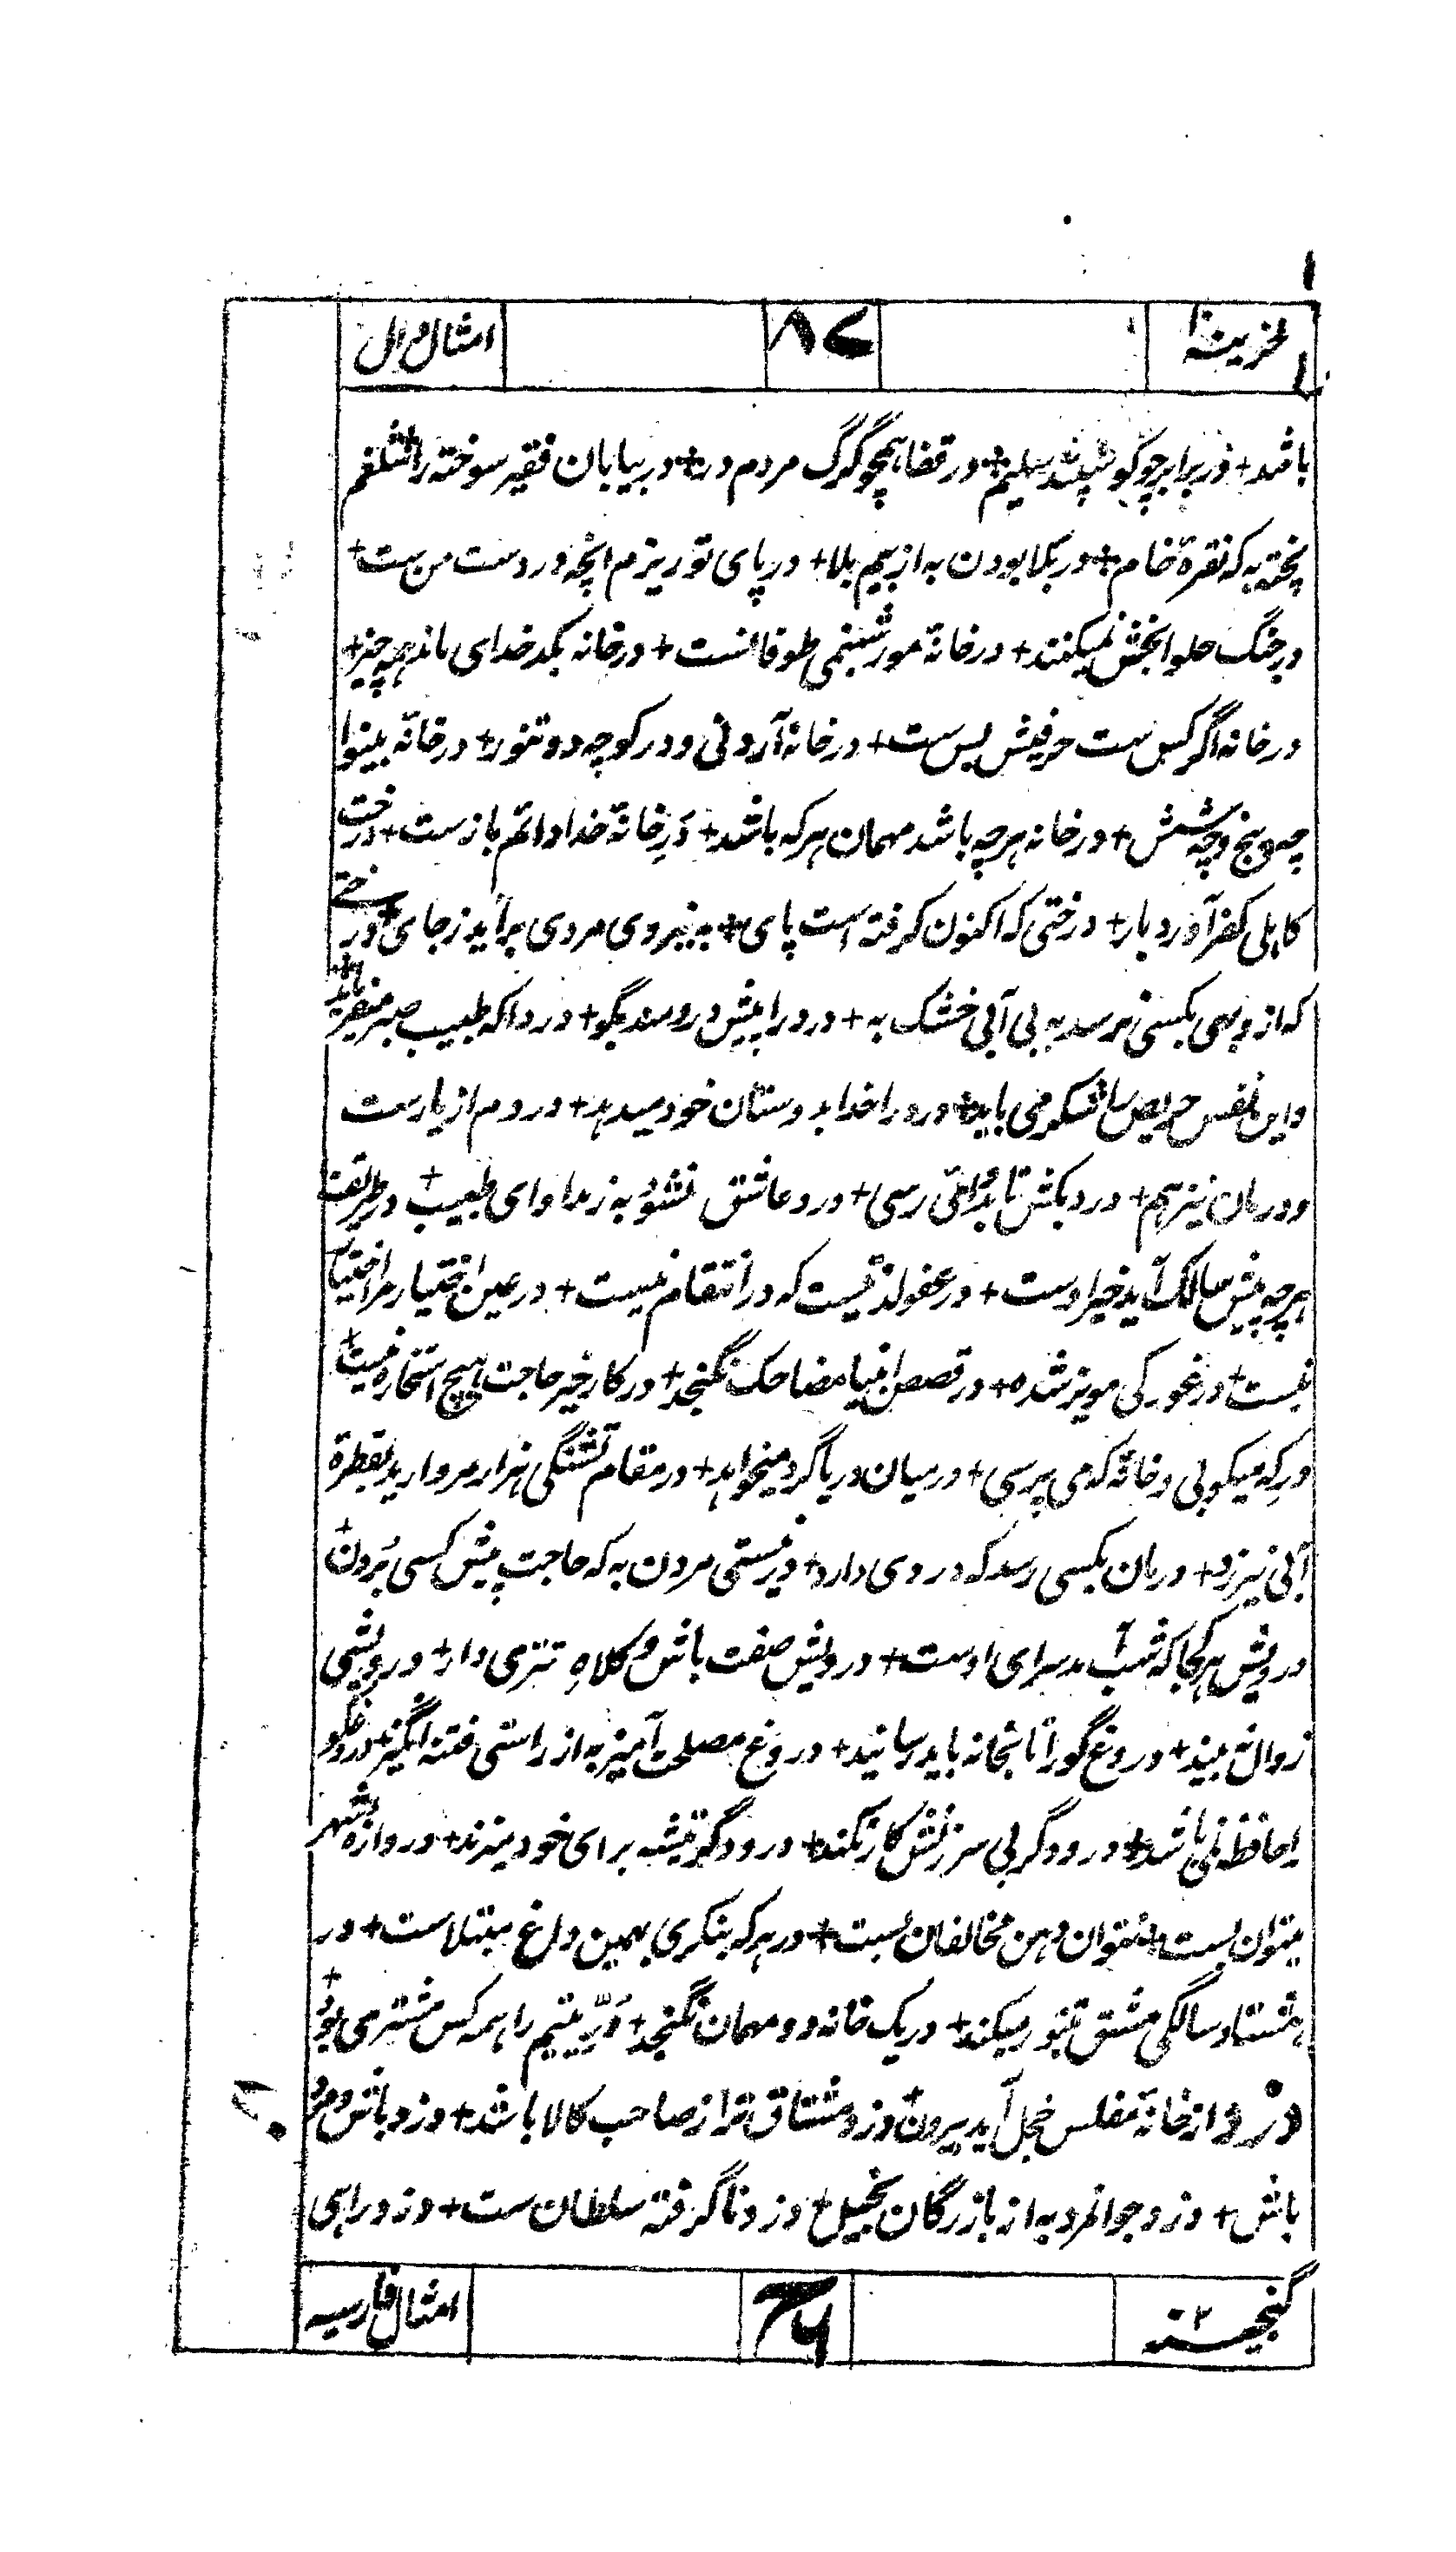 خزینۂ ۱ ۸۷ امثال دال
باشد+ در برابر چو گوسپند سلیم+ در قفا همچو گرگ مردم در+ در بیابان فقیر سوخته را شلغم
پخته به که نقرۂ خام+ در بلا بودن به از بیم بلا+ در پای تو ریزم انچه در دست من ست+
در جنگ حلوا بخش نمیکنند+ در خانۂ مور شبنمی طوفانست+ در خانه بکدخدای ماند همه چیز+
در خانه اگر کس ست حرفیش بس ست+ در خانه آرد نی و در کوچه دو تنور+ در خانۂ بینوا
چه پنج و چه شش+ در خانه هرچه باشد مهمان هر که باشد+ دَرِ خانۂ خدا دائم باز ست+ درخت
کاهلی کفر آورد بار+ درختی که اکنون گرفته است پای+ به نیروی مردی برآید ز جای+ درختے
که از وی بکسی نرسد به بی آبی خشک به+ درد را پیش دردمند بگو+ دردا که طبیب صبر میفرماید+
و این نفس حریص را شکر می باید+ درد را خدا بدوستان خود میدهد+ دردم از یار ست
و درمان نیز هم+ درد بکش تا بدوائی رسی+ درد عاشق نشود به ز مداوای طبیب+ در طریقت
هرچه پیش سالک آید خیر اوست+ در عفو لذتیست که در انتقام نیست+ در عین اختیار مرا اختیار
نیست+ در غورگی مویز شده+ در قصص انبیا مضاحک نگنجد+ در کار خیر حاجت هیچ استخاره نیست+
درِ که میکوبی و خانۂ که می پرسی+ در میان دریا گرد میخواهد+ در مقام تشنگی هزار مروارید بقطرۂ
آبی نیرزد+ درمان بکسی رسد که دردی دارد+ در نیستی مردن به که حاجت پیش کسی بردن+
درویش هر کجا که شب آمد سرای اوست+ درویش صفت باش و کلاهِ تتری دار+ درویشی
زوال نه بیند+ دروغ گو را تا بخانه باید رسانید+ دروغ مصلحت آمیز به از راستی فتنه انگیز+ دروغگو
را حافظه نمی باشد+ درودگر بی سرزنش کار نکند+ درودگر تیشه برای خود میزند+ دروازه شهر
میتوان بست نتوان دهن مخالفان بست+ در هر که بنگری بهمین داغ مبتلاست+ در
هشتاد سالگی مشق تنبور میکند+ در یک خانه دو مهمان نگنجد+ دُرِّ یتیم را همه کس مشتری بود+
دزد از خانۂ مفلس خجل آید بیرون+ دزد مشتاق تر از صاحب کالا باشد+ دزد باش و مرد
باش+ دزد جوانمرد به از بازرگان بخیل+ دزد ناگرفته سلطان ست+ دزد راهی
گنجینۂ ۲ امثال فارسیه